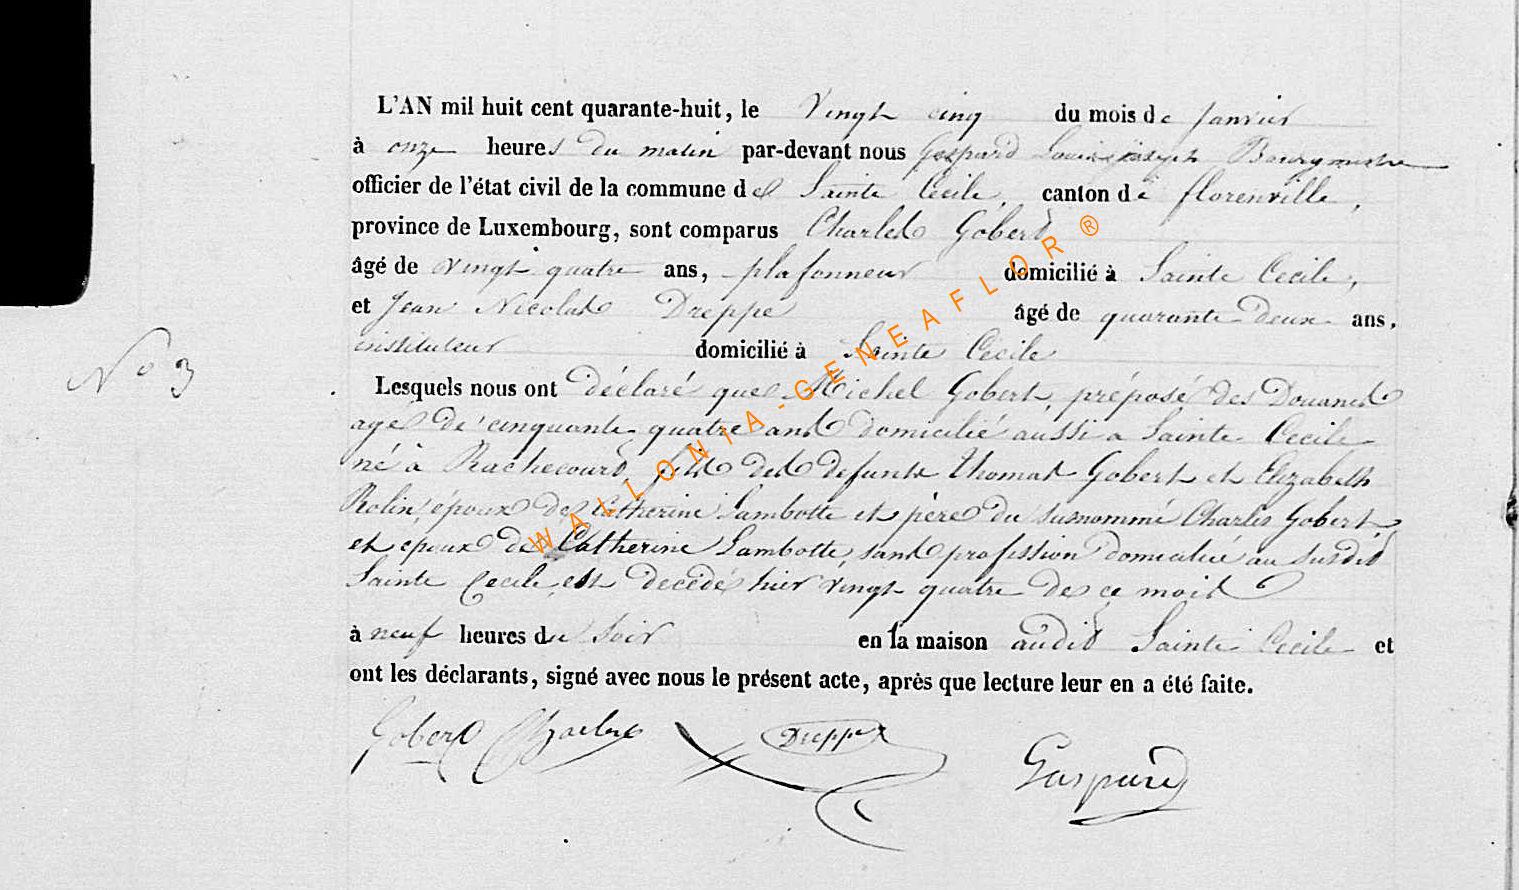 L'AN mil huit cent quarante-huit, le Vingt cinq du mois de Janvier
à onze heures du matin par-devant nous Gaspard Louis joseph Bourgmestre
officier de l'état civil de la commune de Sainte Cécile, canton de florenville,
province de Luxembourg, sont comparus Charles Gobert
âgé de vingt quatre ans, plafonneur domicilié à Sainte Cecile,
et Jean Nicolas Dreppe âgé de quarante deux ans,
instituteur domicilié à Sainte Cécile
Lesquels nous ont déclaré que Michel Gobert, préposé des Douanes
agé de cinquante quatre ans domicilié aussi a Sainte Cecile
né à Rachecourt, fils des defunts Thomas Gobert et Elizabeth
Rolin, époux de Catherine Lambotte et père du susnommé Charles Gobert,
et epoux de Catherine Lambotte, sans profession domicilié au susdit
Sainte Cecile, est decedé hier vingt quatre de ce mois
à neuf heures du Soir en la maison audit Sainte Cecile et
ont les déclarants, signé avec nous le présent acte, après que lecture leur en a été faite.
Gobert Charles Dreppe Gaspard
No 3
WALLONIA-GENEAFLOR ®